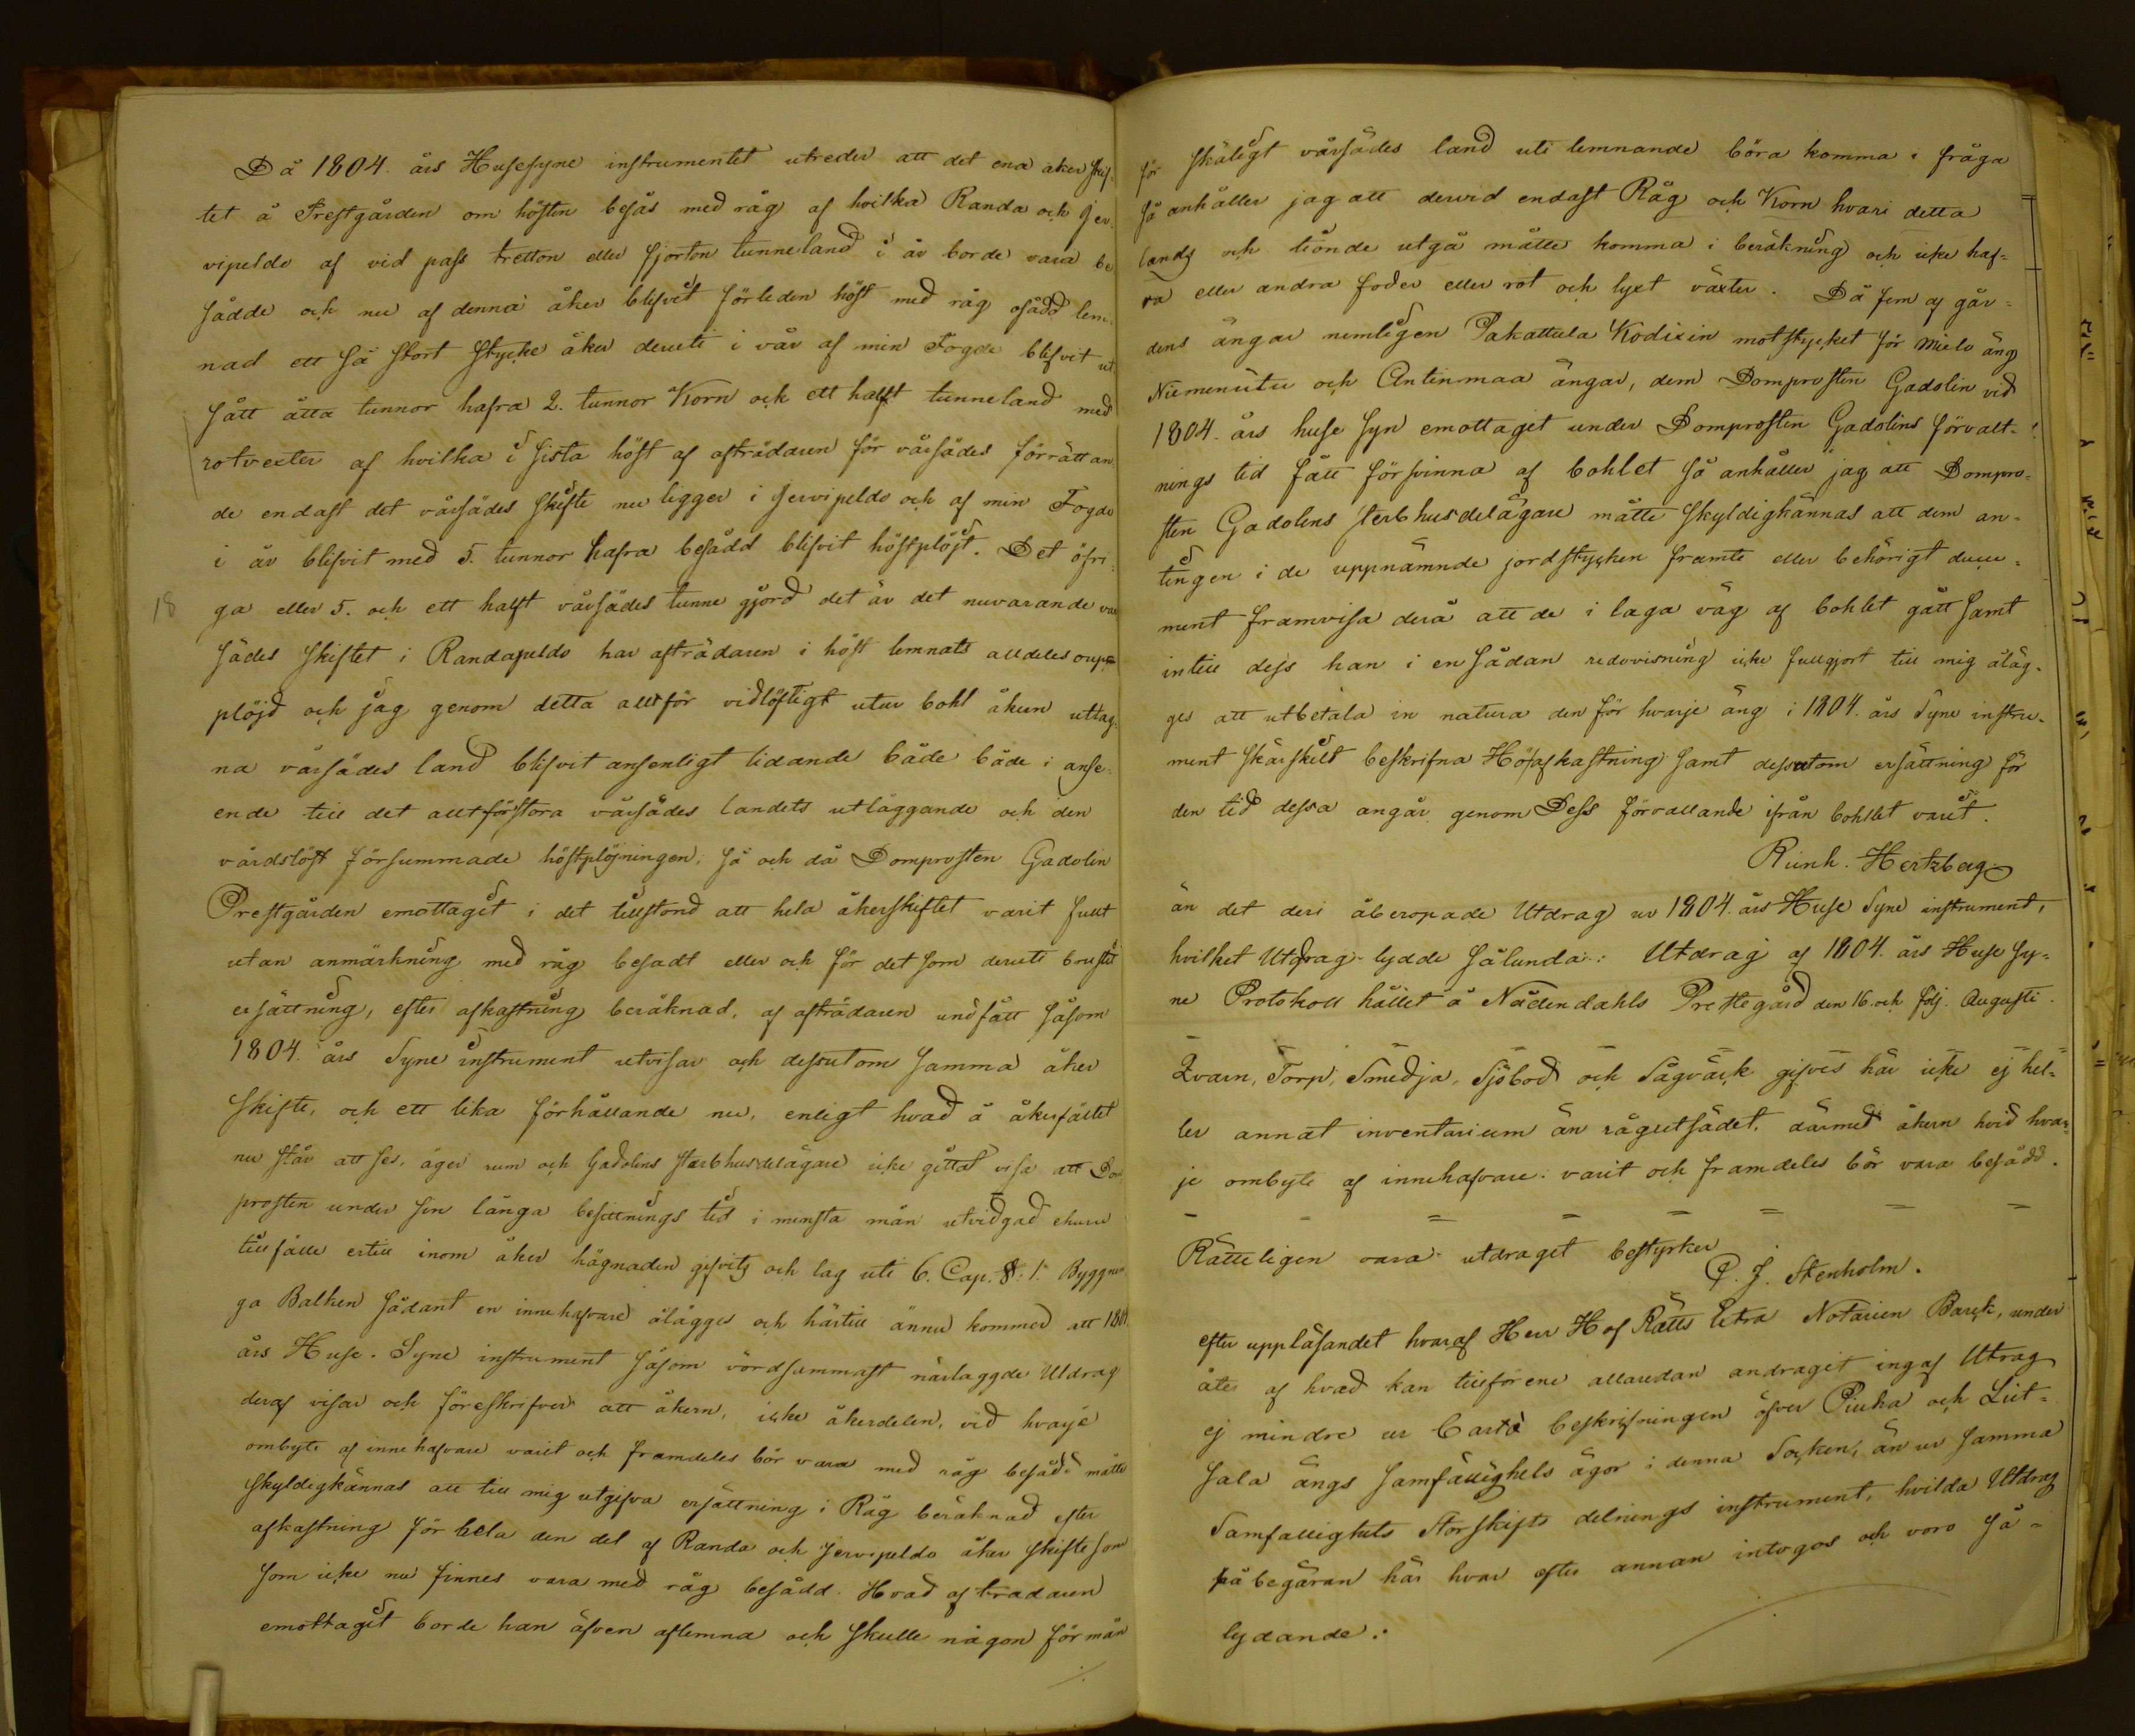 Då 1804. års Husesyne instrumentet utreder att det ena åker skif-
tet å Prestgården om hösten besås med råg af hvilka Randa och Jer-
vipeldo af vid pass tretton eller fjorton tunneland i år borde vara be
sådde och nu af denna åker blifvit förleden höst med råg osådd lem-
nad ett så stort stycke åker deruti i vår af min Fogde blifvit ut
sått åtta tunnor hafra 2. tunnor Korn och ett halft tunneland med
rotvexter af hvilka i sista höst af afträdaren för vårsädes förrättan
de endast det vårsädes skifte nu ligger i Jervipeldo och af min Fogde
i år blifvit med 5. tunnor hafra besådd blifvit höstplöjt. Det öfri-
18
ga eller 5. och ett halft vårsädes tunne gjord det är det nuvarande vår
sädes skiftet i Randapeldo har afträdaren i höst lemnats alldeles oupp
plöjd och jag genom detta allt för vidlöftigt utur bohl åkern uttag-
na vårsädes land blifvit ansenligt lidande både både i anse-
ende till det allt för stora vårsädes landets utläggande och den
vårdslöst försummade höstplöjningen; Så och då Domprosten Gadolin
Prestgården emottagit i det tillstond att hela åkerskiftet varit fullt
utan anmärkning med råg besadt eller och för det som deruti brustit
ersättning, efter afkastning beräknad, af afträdaren undfått såsom
1804. års Syne instrument utvisar och dessutom samma åker
skifte, och ett lika förhållande nu, enligt hvad å åkerfältet
nu står att ses, äger rum och Gadolins sterbhusdelägare icke gittat visa att Dom
prosten under sin långa besittnings tid i minsta mån utvidgad ehuru
tillfälle ertill inom åker hägnaden gifvits och lag uti 6. Cap. §: 1. Byggnin
ga Balken sådant en innehafvare ålägges och härtill ännu kommer att 1804.
års Huse-Syne instrument såsom vördsammast närlaggde Utdrag
deraf visar och föreskrifver att åkern, icke åkerdelen, vid hvarje
ombyte af innehafvare varit och framdeles bör vara med råg besådd måtte
skyldigkännas att till mig utgifva ersättning i Råg beräknad efter
afkastning för hela den del af Randa och Jervipeldo åker skifte som
som icke nu finnes vara med råg besådd. Hvad aftradaren
emottagit borde han äfven aflemna och skulle någon förmån
./.
för skäligt vårsädes land uti lemnande böra komma i fråga
så anhåller jag att dervid endast Råg och Korn hvari detta
lands och tionde utgå måtte komma i beräkning och icke haf-
ra eller andra foder eller rot och lyxt växter. Då fem af går-
dens ängar nemligen Pakattula Kodixin motstycket för Mielo äng
Niemenütu och Antinmaa ängar, dem Domprosten Gadolin vid
1804. års huse syn emottagit under Domprosten Gadolins förvalt-
nings tid fått försvinna af bohlet så anhåller jag att Dompro-
sten Gadolins sterbhusdelägare måtte skyldigkännas att dem an-
tingen i de uppnämnde jordstycken framte eller behörigt docu-
ment framvisa derå att de i laga väg af bohlet gått samt
intill dess han i en sådan redovisning icke fullgjort till mig åläg-
ges att utbetala in natura den för hvarje äng i 1804. års Syne instru-
ment särskilt beskrifna Höafkastning samt dessutom ersättning för
den tid dessa angår genom Dess förvallande ifrån bohlet varit.
Rienh. Hertzberg
än det deri åberopade Utdrag ur 1804. års Huse Syne instrument,
hvilket Utdrag lydde sålunda: Utdrag af 1804. års Huse Sy-
ne Protokoll hållet å Nådendahls Prestegård den 16. och följ. Augusti.
Qvarn, Torp, Smedja, Sjöbod och Sågvärk gifves här icke ej hel-
ler annat inventarium än rågutsädet, därmed åkern hvid hvar-
je ombyte af innehafvare: varit och framdeles bör vara besådd.
Rätteligen vara utdraget bestyrker
P. J. Stenholm.
efter uppläsandet hvaraf Herr Hof Rätts Extra Notarien Barck, under
åter af hvad kan tillförene allaredan andragit ingaf Utrag
ej mindre ur Carta beskrifningen öfver Piuha och Liit-
sala ängs samfällighets ägor i denna Socken, än ur samma
Samfällighets Storskifts delnings instrument, hvilda Utdrag
på begäran här hvar efter annan intogos och voro så-
lydande: